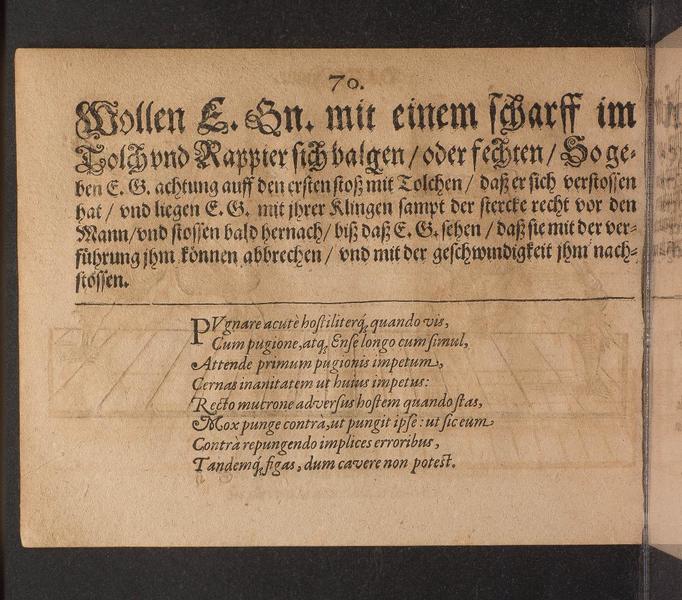 70.
Wollen E. Gn. mit einem scharff im
Tolch vnd Rappier sich balgen / oder fechten / So ge-
ben E. G. achtung auff den ersten stoß mit Tolchen / daß er sich verstossen
hat / vnd liegen E. G. mit jhrer Klingen sampt der stercke recht vor den
Mann / vnd stossen bald hernach / biß daß E. G. sehen / daß sie mit der ver-
führung jhm können abbrechen / vnd mit der geschwindigkeit jhm nach-
stossen.
PVgnare acutè hostiliterq́, quando vis,
Cum pugione, atq, Ense longo cum simul,
Attende primum pugionis impetum,
Cernas inanitatem ut huius impetus:
Recto mucrone adversus hostem quando stas,
Mox punge contrà, ut pungit ipse: ut sic eum
Contrà repungendo implices erroribus,
Tandemq́, figas, dum cavere non potest.